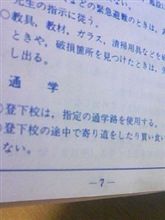 先生の指示に従う。
○教具、教材、ガラス、清掃用具などを破
ときや、破損箇所を見つけたときは、
し出る。
通学
○登下校は、指定の通学路を使用する。
○登下校の途中で寄り道をしたり買い食い
ない。
－7－